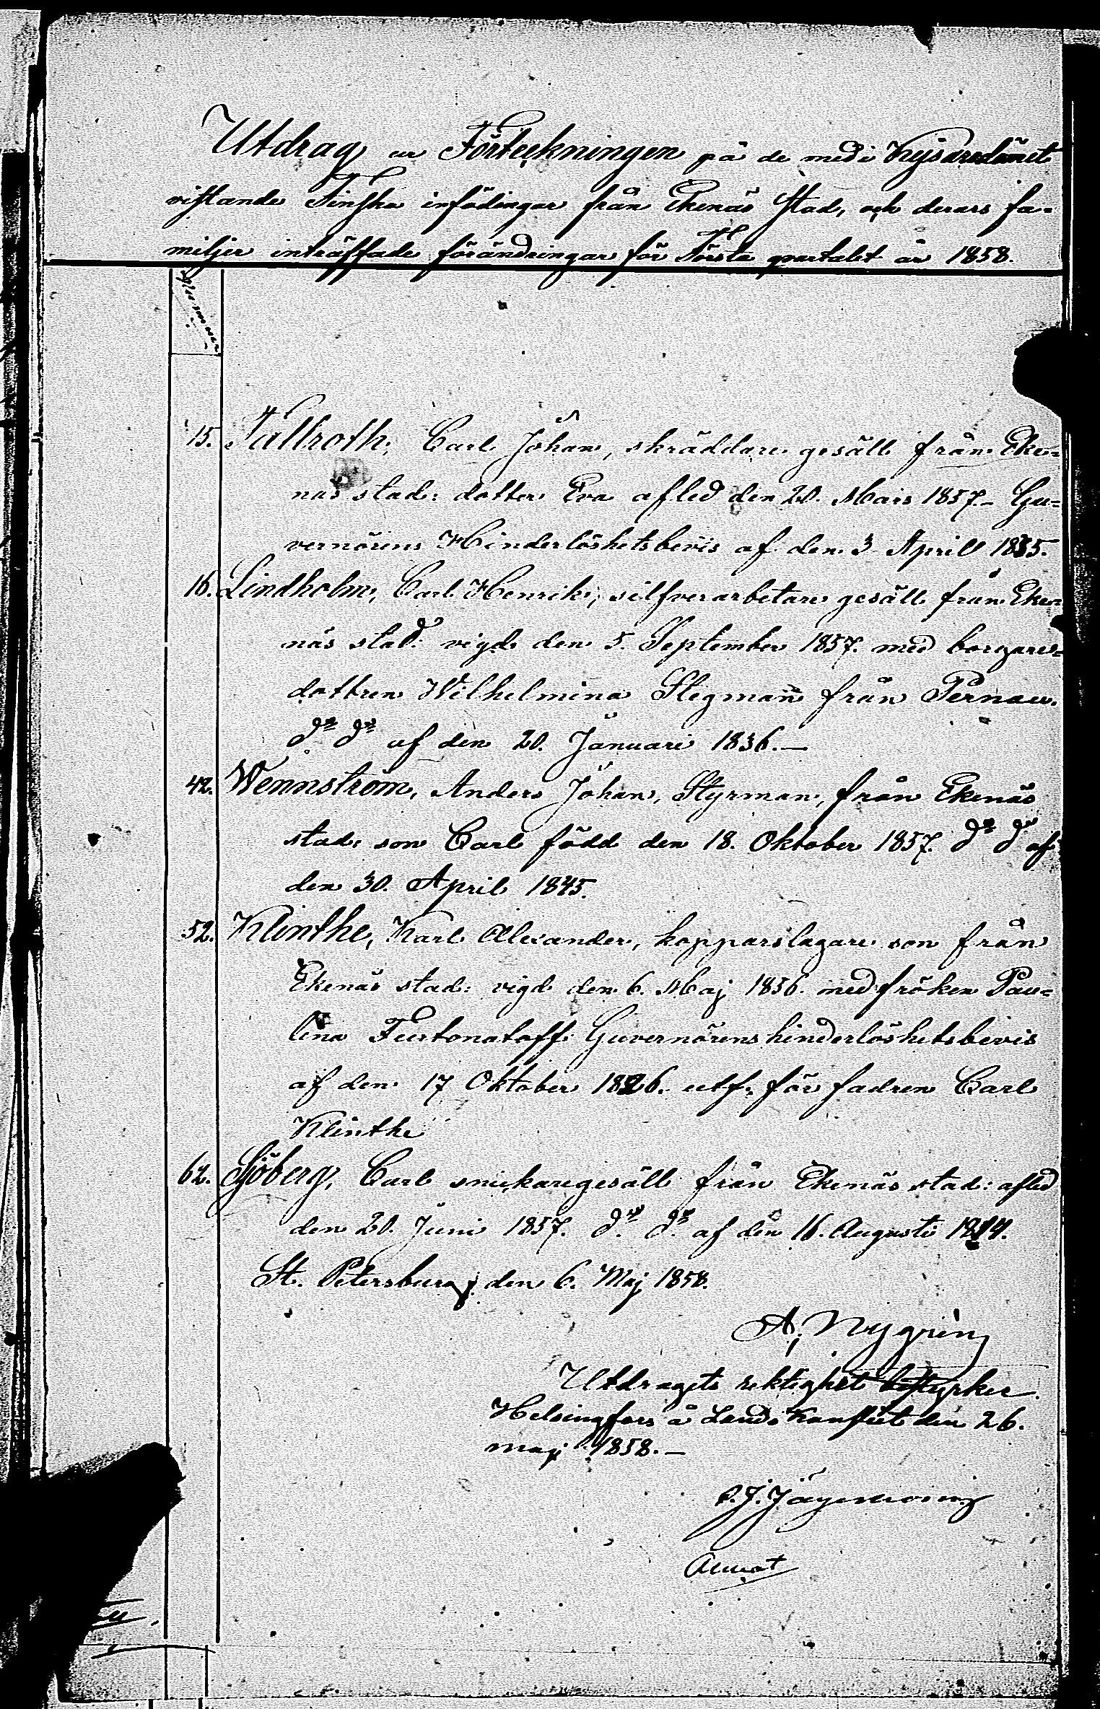 Utdrag ur Förteckningen på de med i Kejsaredömet
vistande Finska infödingar från Ekenäs Stad, och deras fa=
miljer inträffade förändringar för Första qvartalet år 1858.
Nummer
15. Tallroth, Carl Johan, skräddare gesäll från Eke=
näs stad: dotter Eva afled den 20. Mars 1857.- Gu=
vernörens Hinderlöshetsbevis af den 3 Aprill 1835.
16. Lindholm, Carl Henrik, silfverarbetare gesäll från Eke=
näs stad: vigd den 5. September 1857. med borgare=
dottren Wilhelmina Stegmann från Pernau.
do do af den 20. Januari 1836.—
42. Wennström, Anders Johan, Styrman, från Ekenäs
stad: son Carl född den 18. Oktober 1857. do do af
den 30. April 1845.
52. Klinthe, Karl Alexander, kopparslagare son från
Ekenäs stad: vigd den 6. Maj 1856. med fröken Pau=
lina Guvernörens hinderlöshetsbevis
af den 17 Oktober 1826. utf: för fadren Carl
Klinthe
62. Sjöberg, Carl snickaregesäll från Ekenäs stad: afled
den 20. Juni 1857. do do af den 16. Augusti
St. Petersburg, den 6. Maj 1858.
A. Nygrén
Utdragets riktighet bestyrker
Helsingfors å Lands Kansliet den 26.
maj 1858.—